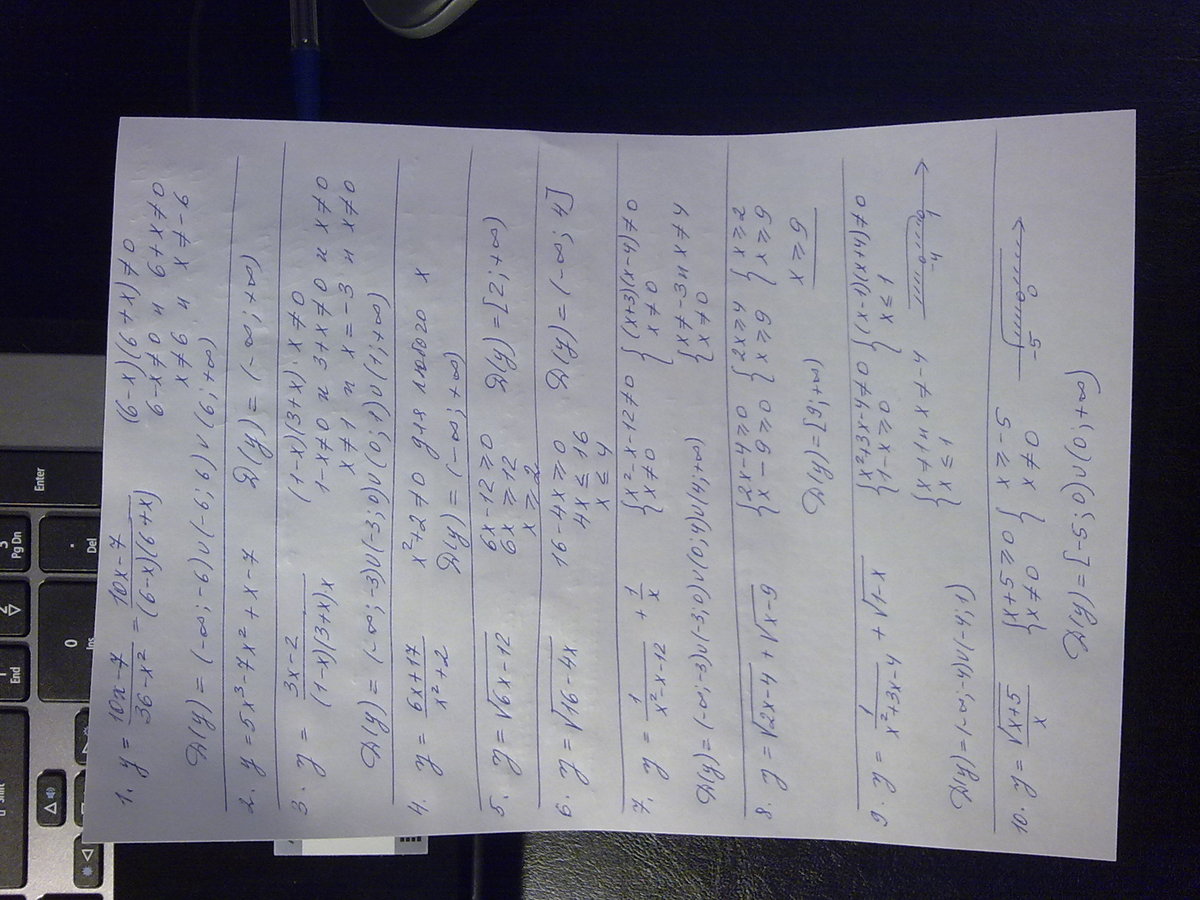 1. y = (10x-7)/(36-x²) = (10x-7)/((6-x)(6+x)) (6-x)(6+x)≠0
6-x≠0 и 6+x≠0
x≠6 и x≠-6
D(y) = (-∞;-6)∪(-6;6)∪(6;+∞)
2. y=5x³-7x²+x-7 D(y)=(-∞;+∞)
3. y = (3x-2)/((1-x)(3+x)x) (1-x)(3+x)·x≠0
1-x≠0 и 3+x≠0 и x≠0
x≠1 и x=-3 и x≠0
D(y) = (-∞;-3)∪(-3;0)∪(0;1)∪(1;+∞)
4. y = (6x+17)/(x²+2) x²+2≠0 для любого x
D(y)=(-∞;+∞)
5. y=√(6x-12) 6x-12≥0 D(y)=[2;+∞)
6x≥12
x≥2
6. y=√(16-4x) 16-4x≥0 D(y)=(-∞;4]
4x≤16
x≤4
7. y = 1/(x²-x-12) + 1/x {x²-x-12≠0 {(x+3)(x-4)≠0
x≠0 x≠0
{x≠-3 и x≠4
x≠0
D(y)=(-∞;-3)∪(-3;0)∪(0;4)∪(4;+∞)
8. y=√(2x-4)+√(x-9) {2x-4≥0 {2x≥4 {x≥2
x-9≥0 x≥9 x≥9
x≥9
D(y)=[9;+∞)
9. y = 1/(x²+3x-4) + √(1-x) {x²+3x-4≠0 {(x-1)(x+4)≠0
1-x≥0 x≤1
{x≠1 и x≠-4
x≤1
-4 1
D(y)=(-∞;-4)∪(-4;1)
10. y=√(x+5)/x {x+5≥0 {x≥-5
x≠0 x≠0
-5 0
D(y)=[-5;0)∪(0;+∞)
Enter
3
Pg Dn
.
Del
2
0
Ins
1
End